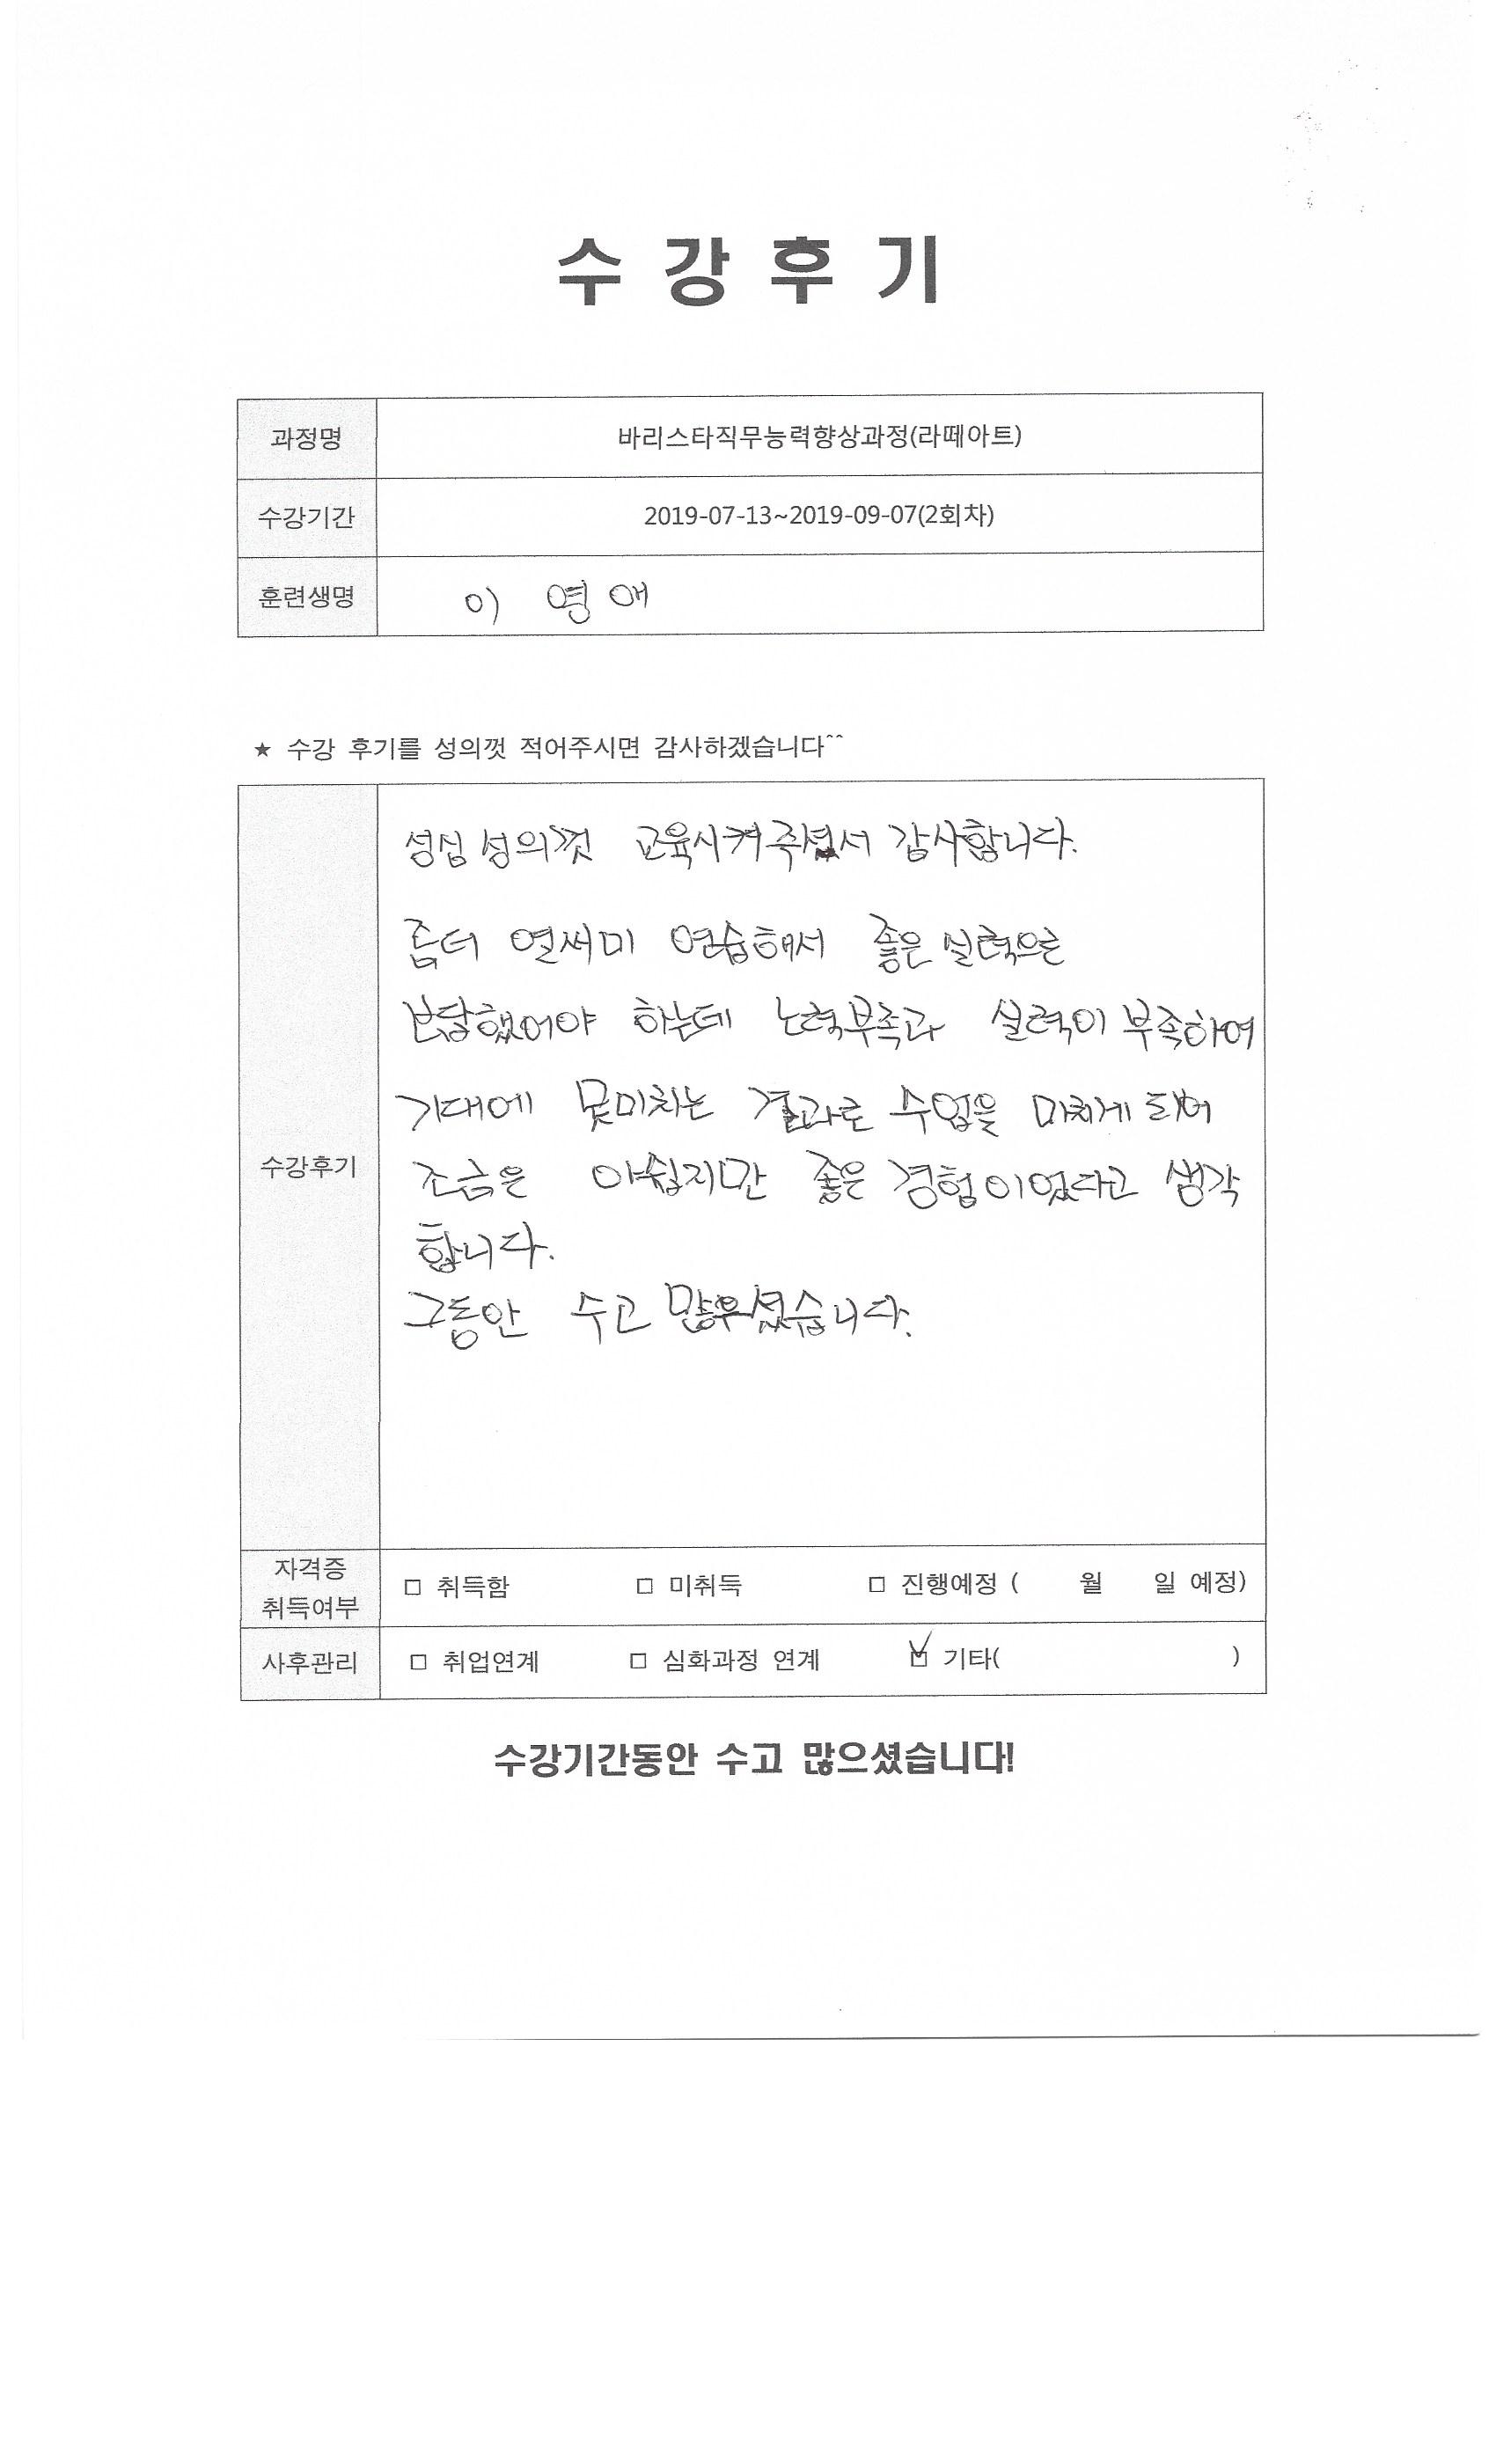 수 강 후 기
과정명 바리스타직무능력향상과정(라떼아트)
수강기간 2019-07-13~2019-09-07(2회차)
훈련생명 이 영애
★ 수강 후기를 성의껏 적어주시면 감사하겠습니다^^
성심성의껏 교육시켜주셔서 감사합니다.
좀더 열써미 연습해서 좋은실력으로
보답했어야 하는데 노력부족과 실력이 부족하여
기대에 못미치는 결과로 수업을 마치게 되어
수강후기
조금은 아쉽지만 좋은 경험이었다고 생각
합니다.
그동안 수고 많으셨습니다.
자격증
취득여부
□ 취득함 □ 미취득 □ 진행예정 ( 월 일 예정)
사후관리 □ 취업연계 □ 심화과정 연계 ☑ 기타( )
수강기간동안 수고 많으셨습니다!